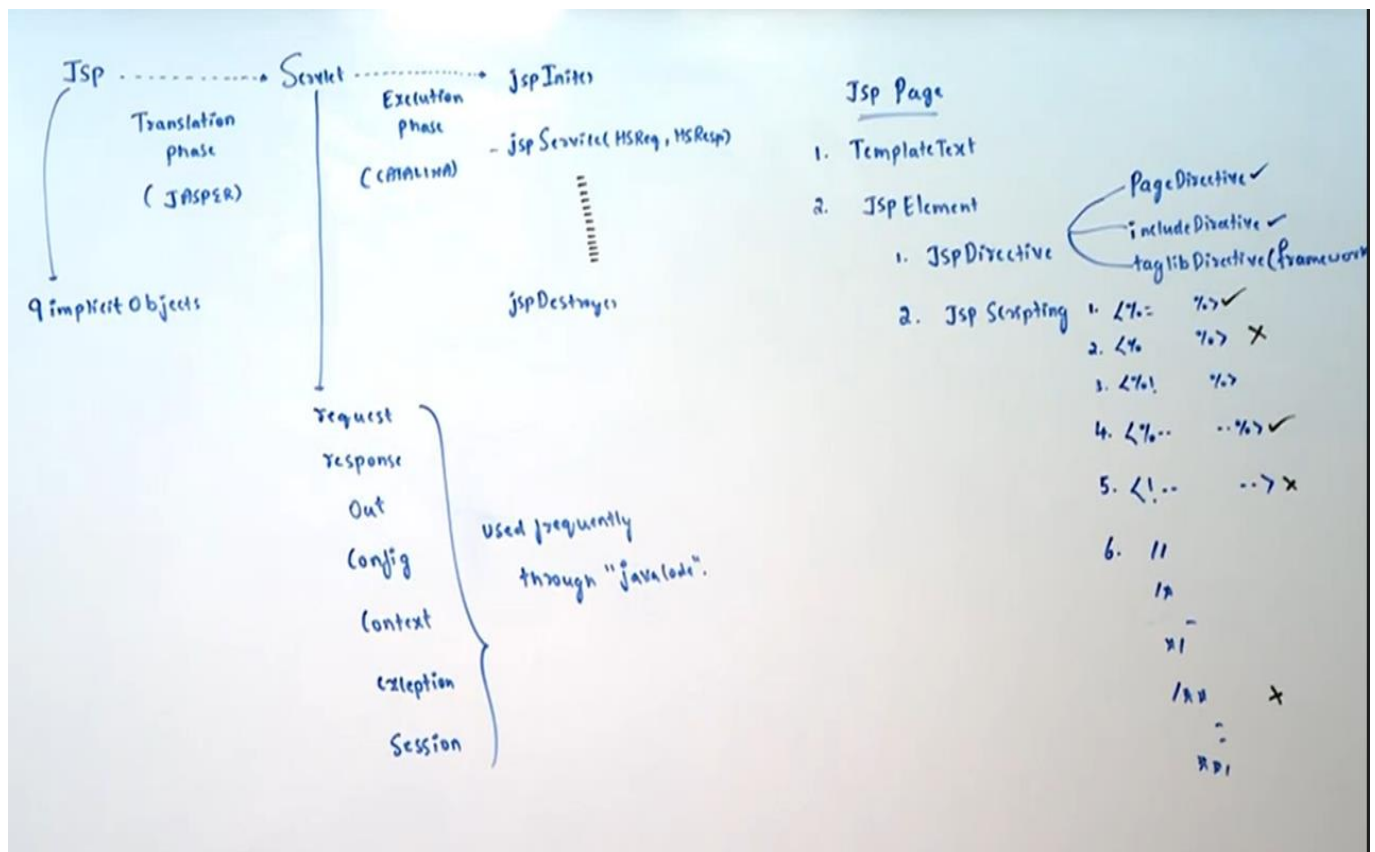 Jsp ------------ Servlet ------------ jspInit()
Translation
phase
(JASPER)
Execution
phase
(CATALINA)
- jspService(HSReq, HSResp)
jspDestroy()
9 implicit Objects
request
response
Out
Config
Context
exception
Session
used frequently
through "java code".
Jsp Page
1. TemplateText
2. JSP Element
1. JspDirective
PageDirective ✓
includeDirective ✓
taglibDirective(framework
2. Jsp Scripting
1. <%= %> ✓
2. <% %> ✗
3. <%! %>
4. <%-- --%> ✓
5. <!-- --> ✗
6. //
/*
*/
/** ✗
**/